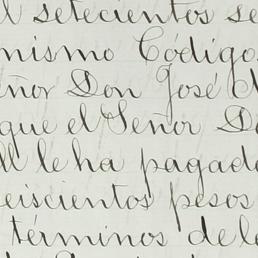 setecientos se
mismo Código
eñor Don José
que el Señor D
le ha pagado
eiscientos pesos
términos de l